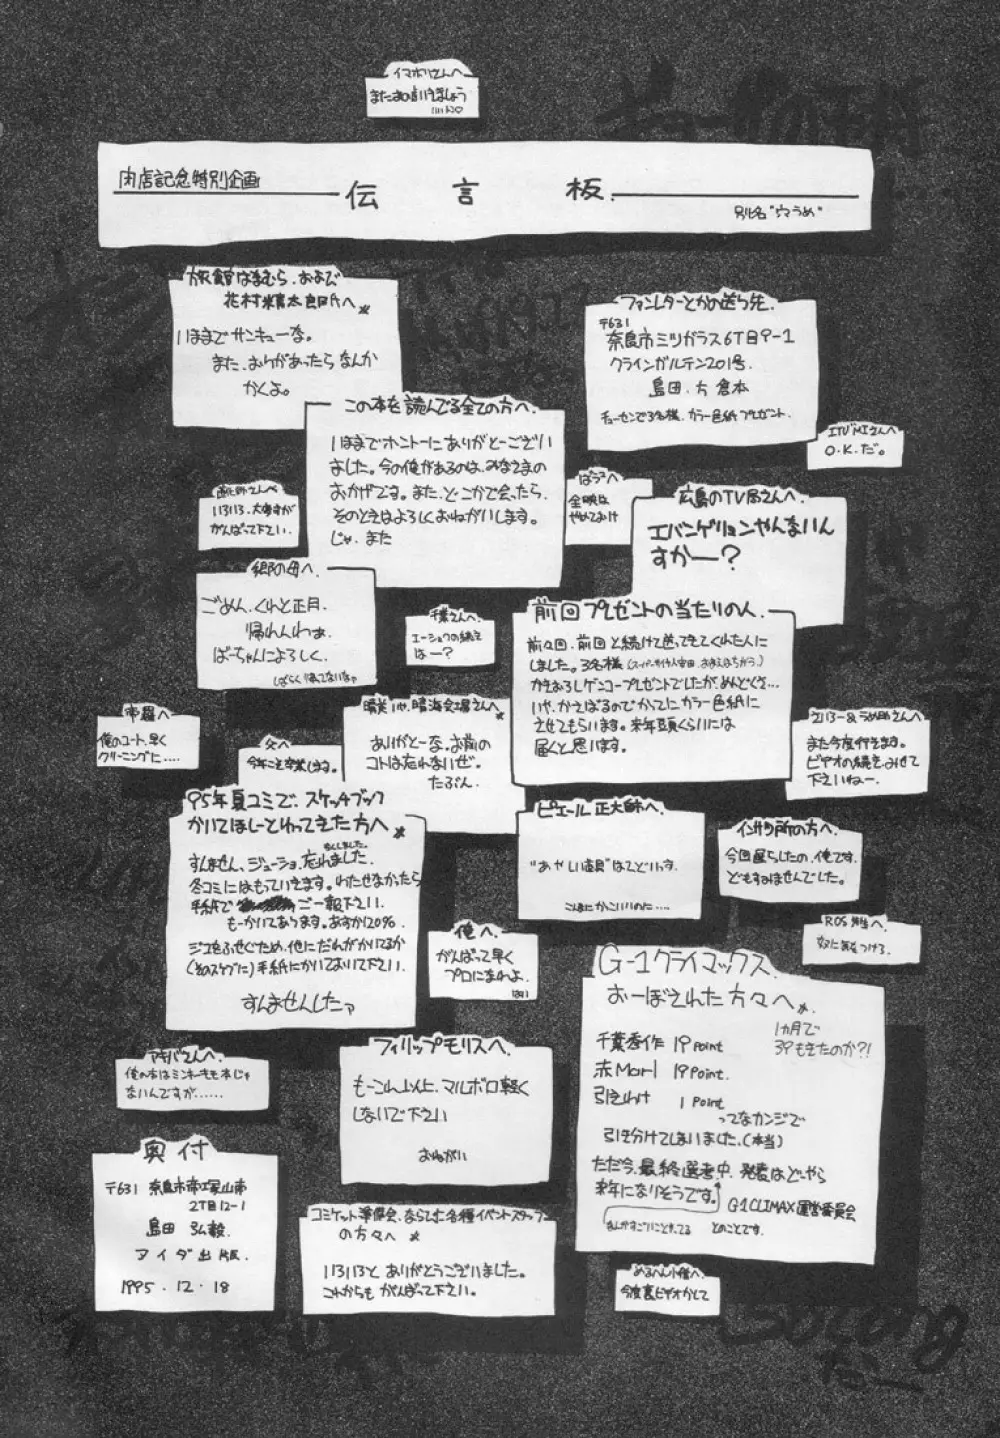 イマホリさんへ
またお会いしましょう
肉店記念特別企画
伝言板
別名"穴うめ"
旅館はまむら、および
花村米貴太良氏へ
いままでサンキューな。
また、おりがあったらなんか
かくよ。
ファンレターとかの送り先
〒631
奈良市ミツガラス6丁目9-1
クラインガルテン201号
島田 方 倉本
チューセンで3名様、カラー色紙プレゼント。
この本を読んでる全ての方へ
いままでホントーにありがとーござい
ました。今の俺があるのは、みなさまの
おかげです。また、どこかで会ったら、
そのときはよろしくおねがいします。
じゃ、また
O.K.だ。
いろいろ、大変すが
がんばって下さい。
やめておけ
広島のTV局さんへ
エバンゲリョンやんないん
すかー?
郷の母へ
ごめん、くれと正月、
帰れんわぁ。
ばーちゃんによろしく。
しばらく帰ってないなァ
千葉さんへ
エーショウの続き
はー?
前回プレゼントの当たりの人
前々回、前回と続けて送ってきてくれた人に
しました。3名様
かきおろしゲンコープレゼントでしたが、めんどくさ…
いや、かえばるのでかってにカラー色紙に
させてもらいます。来年頭くらいには
届くと思います。
帝羅へ
俺のコート、早く
クリーニングに……
父へ
今年こそ卒業します。
晴美いや、晴海会場さんへ
ありがとーな。お前の
コトは忘れないぜ。
たぶん。
また今度行きます。
ビデオの続き、みせて
下さいねー。
95年夏コミで、スケッチブック
かいてほしーとわってきた方へ
すんません、ジューショ、忘れました。
冬コミにはもっていきます。わたせなかったら
手紙で ご一報下さい。
もーかいてあります。あすか120%
ジコをふせぐため、他にだれがかいてるか
(そのスケブに)手紙にかいておいて下さい。
すんませんしたァ
ピエール正大師へ
"あやしい道具"はどこでいいす。
こんなにかっこいいのに……
インサツ所の方へ
今回遅らしたの、俺です。
どもすみませんでした。
ROS先生へ
奴に気をつけろ
俺へ
がんばって早く
プロになれよ。
はい
G-1クライマックス
おーぼされた方々へ
1カ月で
39もきたのか?!
千葉秀作 19point
赤Mari 19point
引きわけ 1point
ってなカンジで
引き分けてしまいました。(本当)
ただ今、最終選考中、発表はどーやら
来年になりそうです。
G-1 CLIMAX運営委員会
とのことです。
アキバさんへ
俺の本はミンキーモモ本じゃ
ないんですが……
フィリップモリスへ
もーこれ以上、マルボロ軽く
しないで下さい
おねがい
奥付
〒631 奈良市帝塚山南
2丁目12-1
島田 弘毅
アイダ出版
1995.12.18
コミケット準備会、ならびに各種イベントスタッフ
の方々へ
いろいろと、ありがとうございました。
これからも がんばって下さい。
今度裏ビデオかして